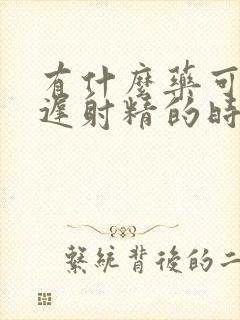 有什麼藥可
遲射精的時
繫統背後的二